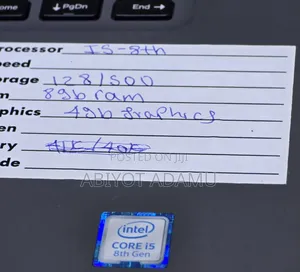 ome
↓ PgDn
End →
rocessor I5-8th
peed
orage 128/500
m 8gb ram
phics 4gb graphics
en
ery
de
POSTED ON JIJI
ABIYOT ADAMU
intel
CORE i5
8th Gen